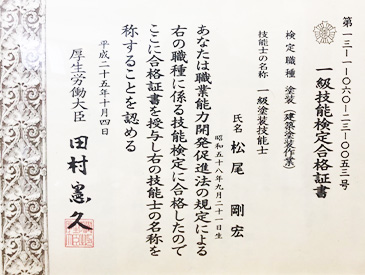 第一三-一-〇六〇-二三-〇〇五三号
一級技能検定合格証書
検定職種　塗装（建築塗装作業）
技能士の名称　一級塗装技能士
氏名　松尾　剛宏
昭和五十八年九月二十一日生
あなたは職業能力開発促進法の規定による
右の職種に係る技能検定に合格したので
ここに合格証書を授与し右の技能士の名称を
称することを認める
平成二十五年十月四日
厚生労働大臣　田村憲久